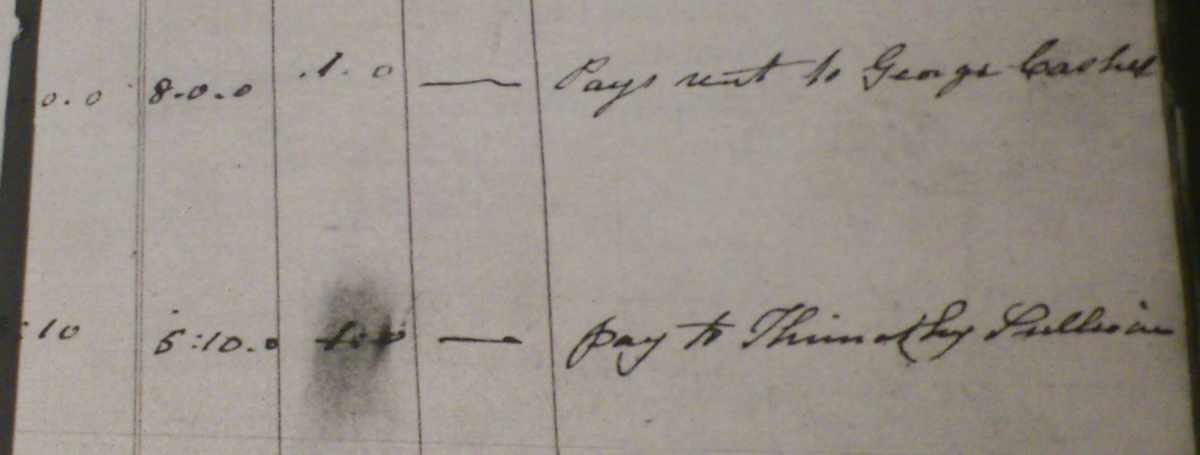 0.0 8.0.0 .1.0 — Pays rent to George Cashel
:10 5:10.0 — pay to Thimothy Sullivan